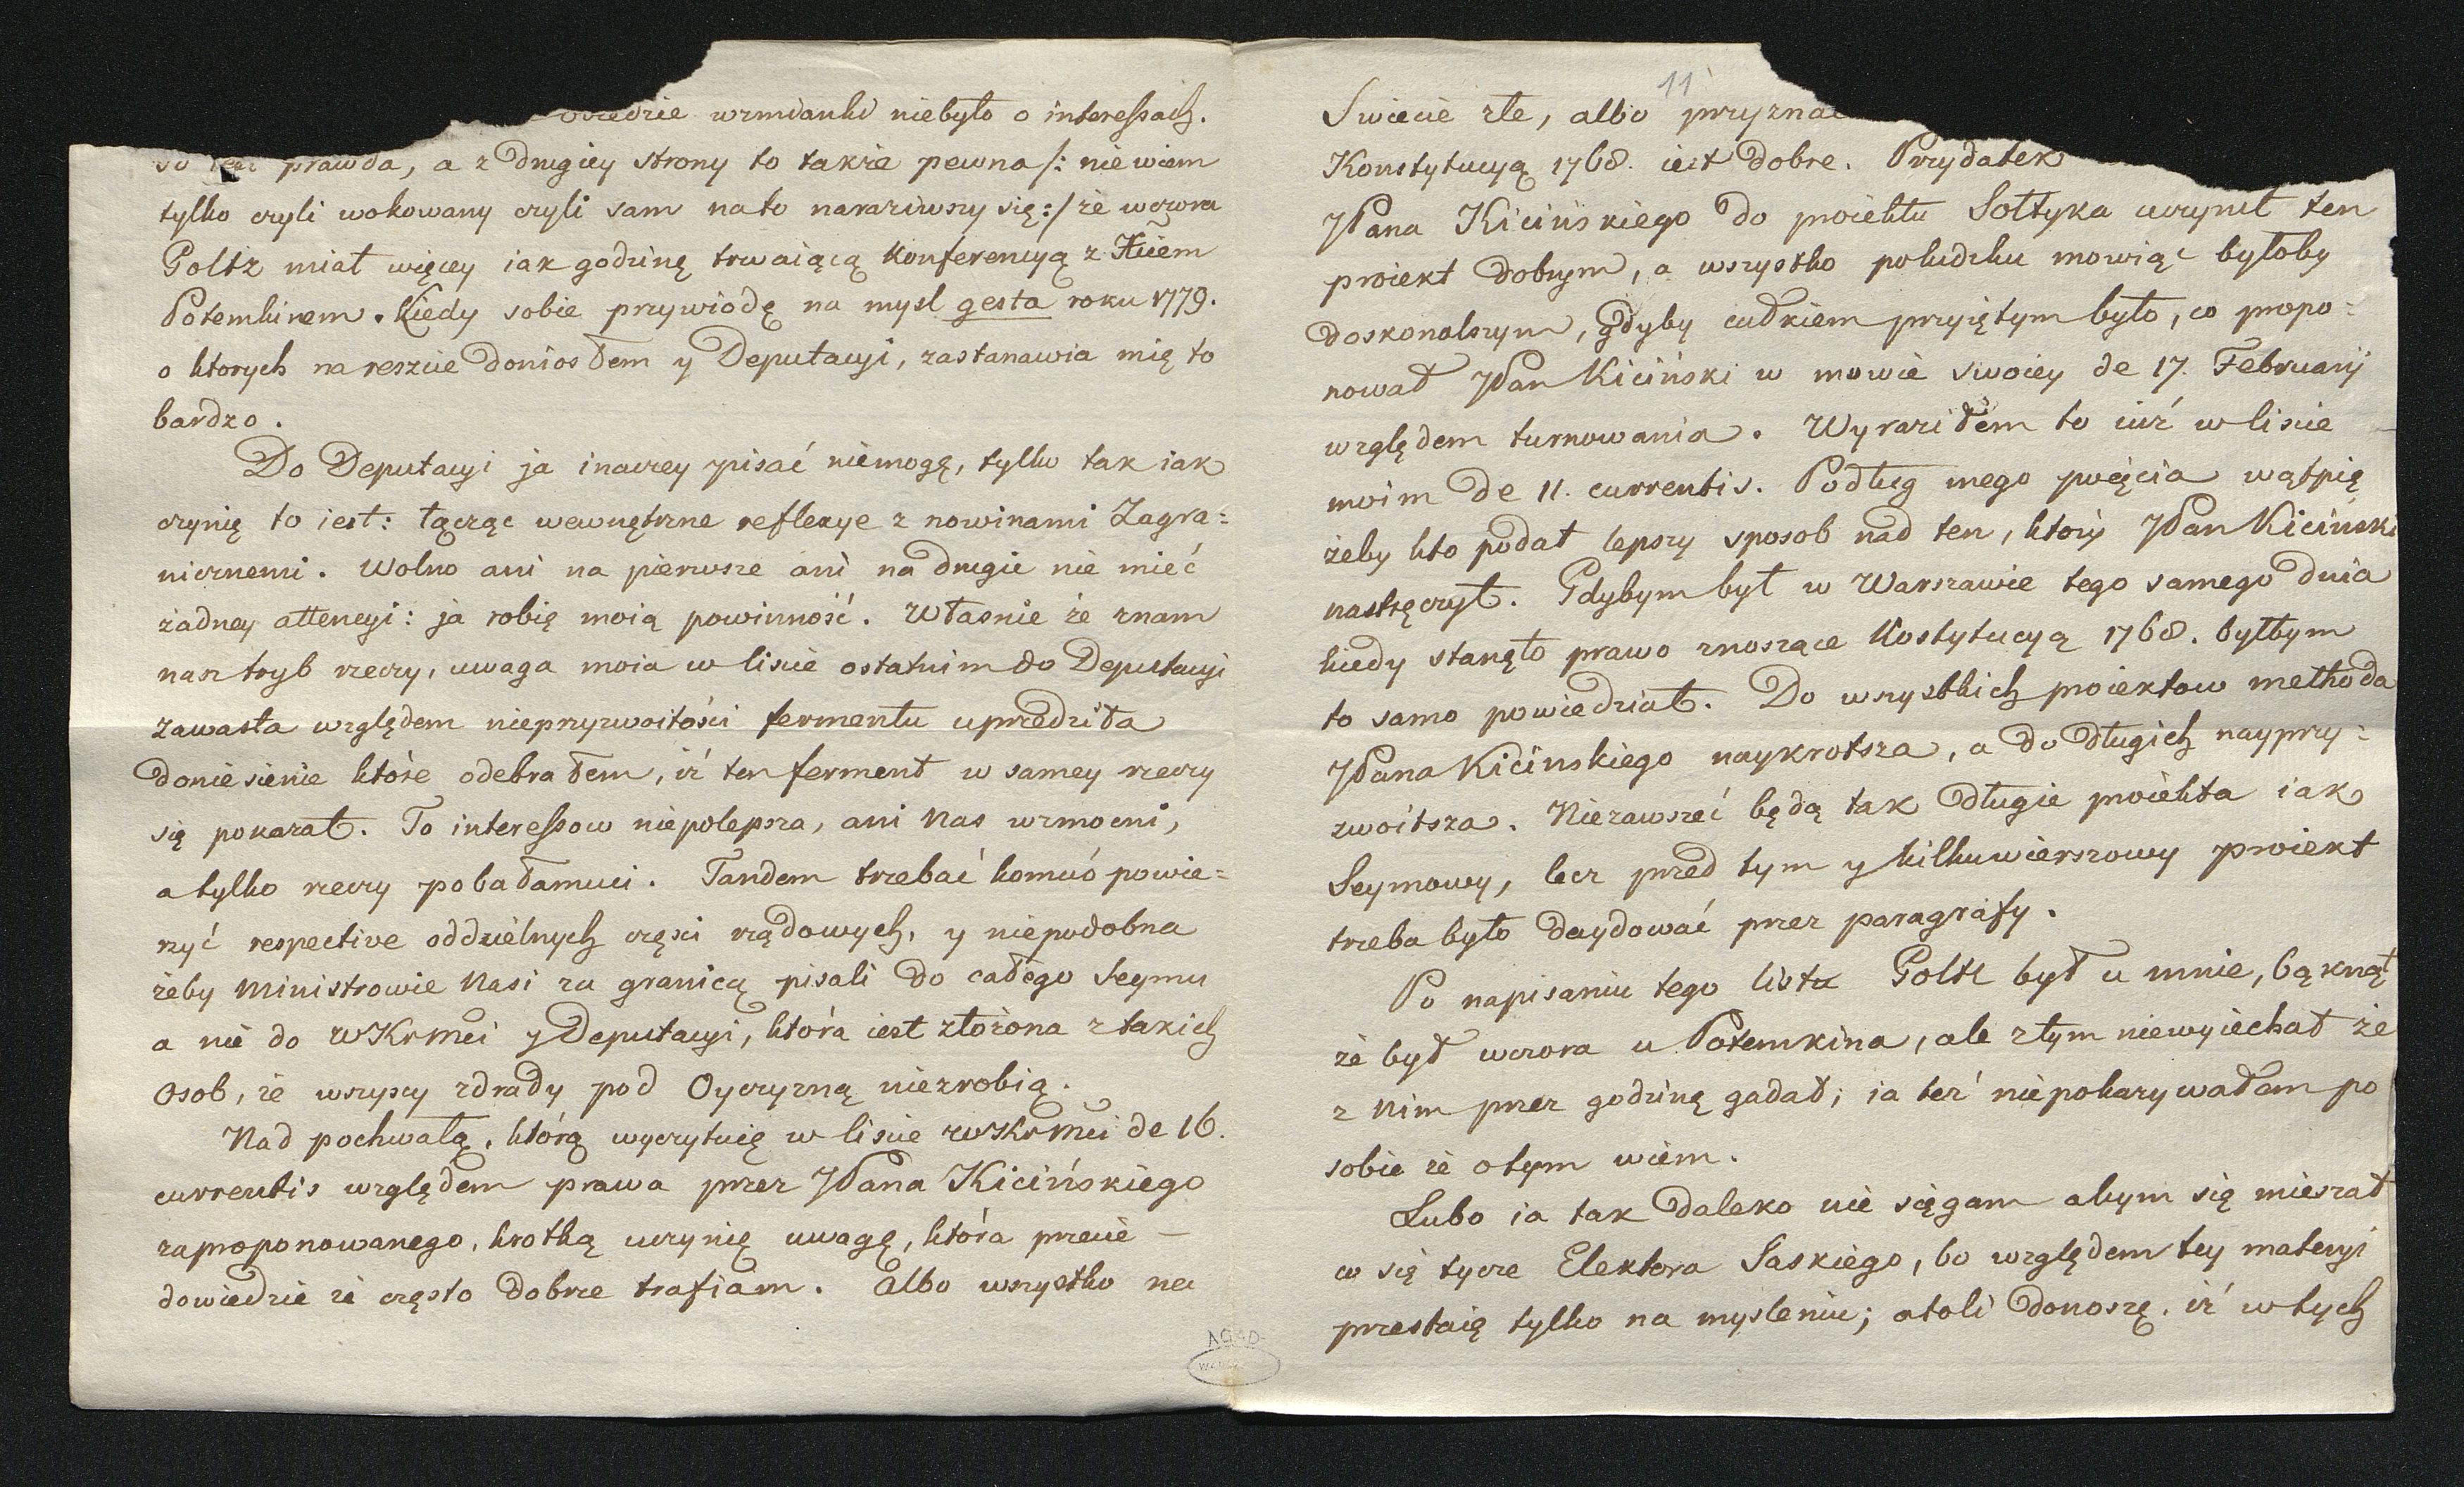 wzmianki niebyło o interessach.
prawda, a z drugiey strony to także pewna /: nie wiem
tylko czyli wokowany czyli sam na to naraziwszy się :/ że wczora
Goltz miał więcey iak godzinę trwaiącą konferencyą z Xciem
Potemkinem. Kiedy sobie przywiodę na mysl gesta roku 1779.
o ktorych na reszcie doniosłem y Deputacyi, zastanawia mię to
bardzo.
Do Deputacyi ja inaczey pisać niemogę, tylko tak iak
czynię to iest: łącząc wewnętrzne reflexye z nowinami Zagra=
nicznemi. Wolno ani na pierwsze ani na drugie nie mieć
żadney attencyi: ja robię moią powinność. Własnie że znam
nasz tryb rzeczy, uwaga moia w liscie ostatnim do Deputacyi
zawasła względem nieprzyzwoitości fermentu uprzedziła
doniesienie które odebrałem, iż ten ferment w samey rzeczy
się pokazał. To interessow niepolepsza, ani nas wzmocni,
a tylko rzeczy pobałamuci. Tandem trzebać komuś powie=
rzyć respective oddzielnych częsci rządowych, y niepodobna
żeby Ministrowie Nasi za granicą pisali do całego Seymu
a nie do WKrMci y Deputacyi, która iest złożona z takich
osob, że wszyscy zdrady pod Oyczyzną niezrobią.
Nad pochwałą, którą wyczytuię w liscie WKrMci de 16.
currentis względem prawa przez JPana Kicińskiego
zaproponowanego, krotką uczynię uwagę, która przecie
dowiedzie że często dobrze trafiam. Albo wszystko na
11
Swiecie złe, albo przyznać
Konstytucyą 1768. iest dobre. Przydatek
JPana Kicińskiego do proiektu Sołtyka uczynił ten
proiekt dobrym, a wszystko poludzku mowiąc byłoby
doskonalszym, gdyby cudkiem przyiętym było, co propo=
nował JPan Kiciński w mowie swoiey de 17. Februarij
względem turnowania. Wyraziłem to iuż w liscie
moim de 11. currentis. Podług mego poięcia wątpię
żeby kto podał lepszy sposob nad ten, ktory JPan Kiciński
nastręczył. Gdybym był w Warszawie tego samego dnia
kiedy stanęło prawo znoszące Kostytucyą 1768. byłbym
to samo powiedział. Do wszystkich proiektow methoda
JPana Kicinskiego naykrotsza, a do długich nayprzy=
zwoitsza. Niezawszeć będą tak długie proiekta iak
Seymowy, lecz przed tym y kilkuwierszowy proiekt
trzeba było decydować przez paragrafy.
Po napisaniu tego listu Goltz był u mnie, bąknął
że był wczora u Potemkina, ale z tym niewyiechał że
z nim przez godzinę gadał; ia też niepokazywałem po
sobie że o tym wiem.
Lubo ia tak daleko nie sięgam abym się mieszał
co się tycze Elektora Saskiego, bo względem tey materyi
przestaię tylko na mysleniu; atoli donoszę, iż w tych
AGAD